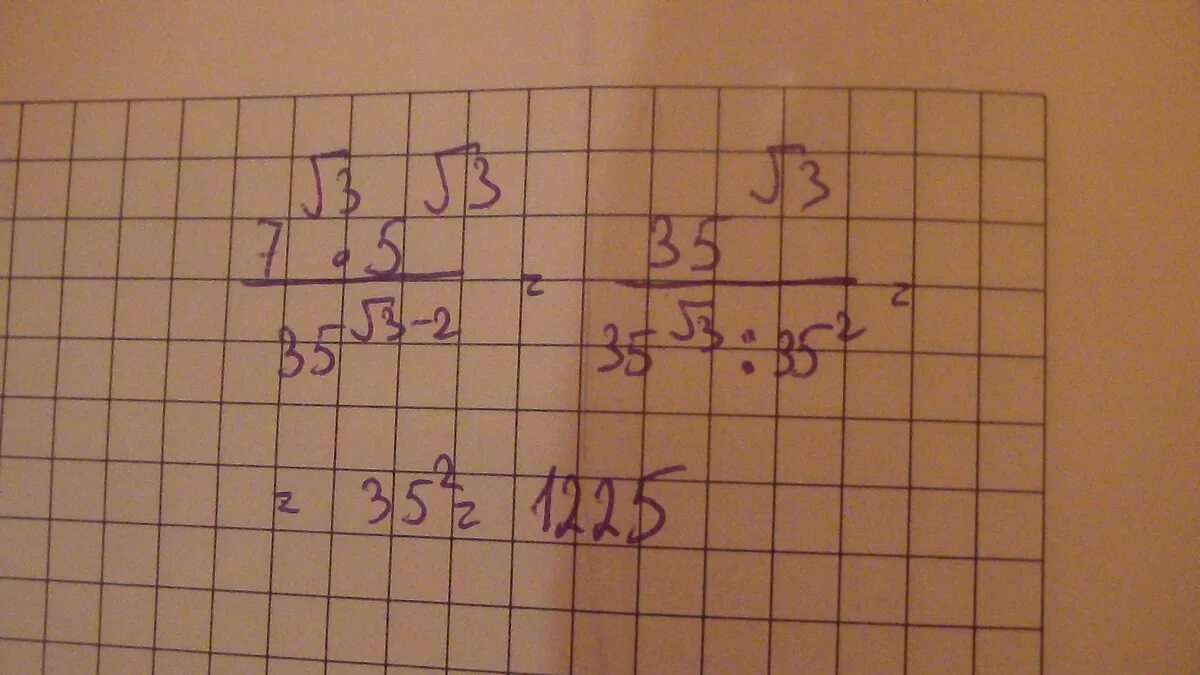 7^√3 · 5^√3 / 35^(√3-2) = 35^√3 / (35^√3 : 35^2) =
= 35^2 = 1225